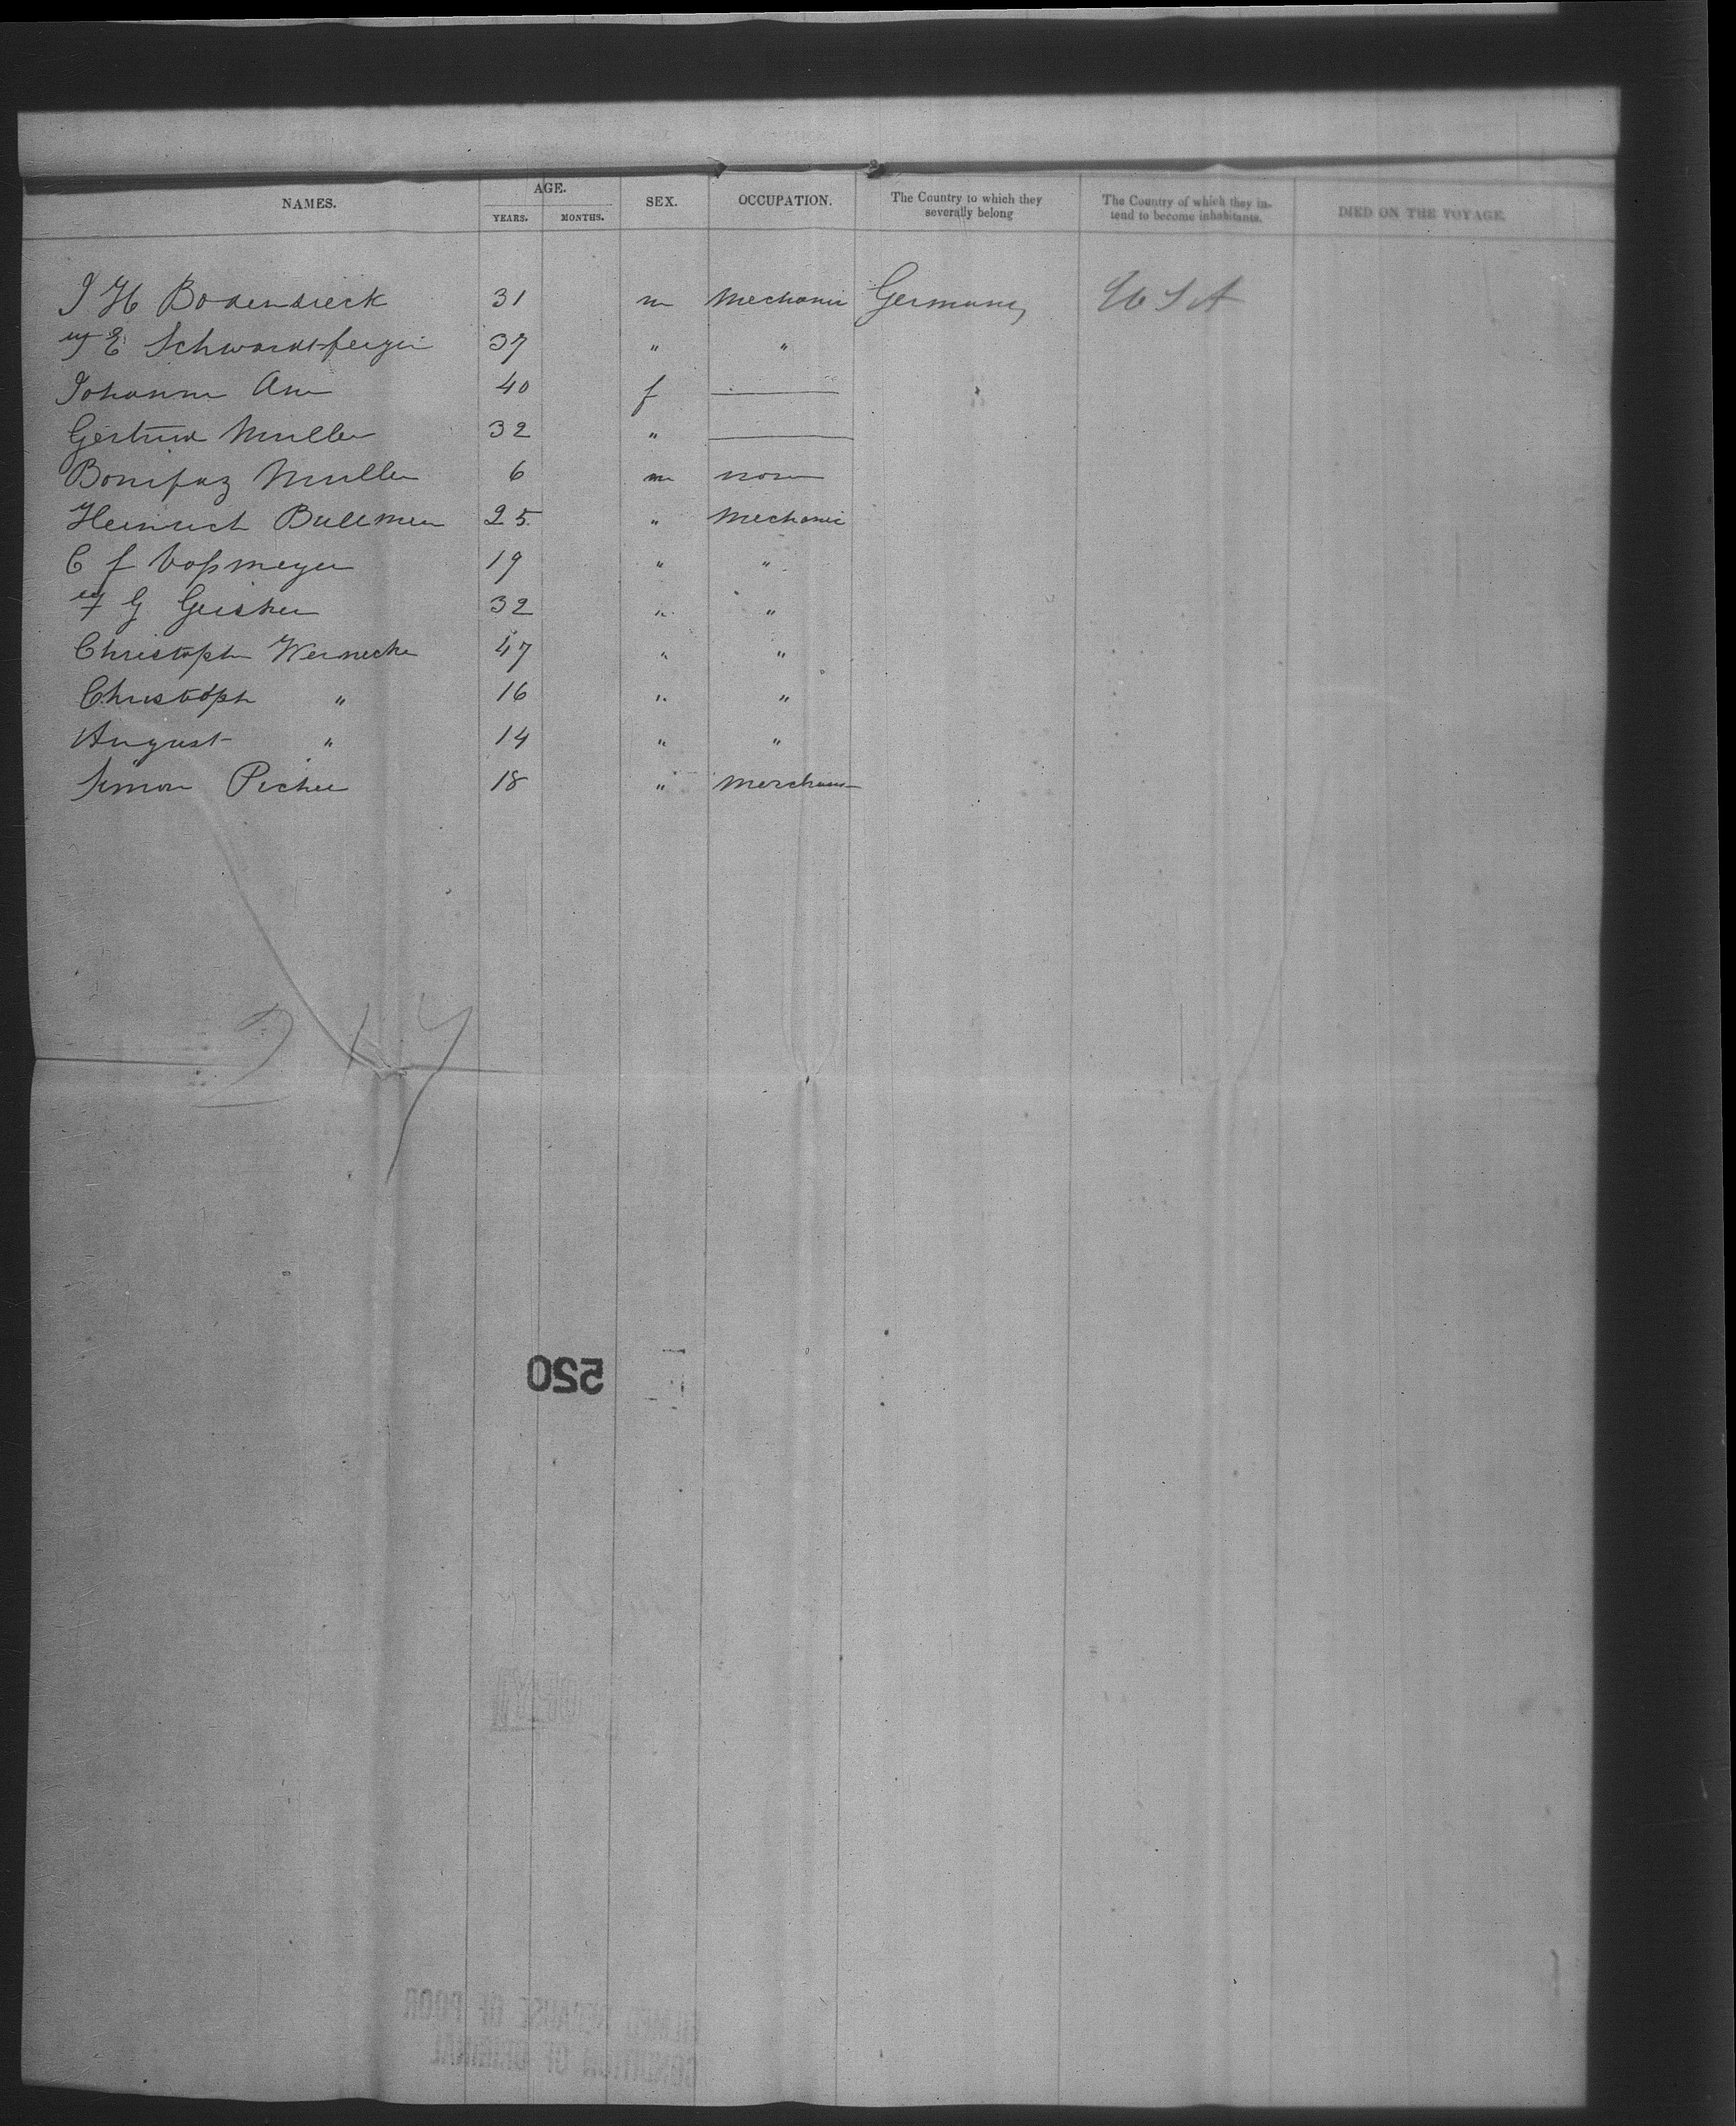 NAMES. AGE. YEARS. MONTHS. SEX. OCCUPATION. The Country to which they severally belong The Country of which they intend to become inhabitants. DIED ON THE VOYAGE.
J H Bodendieck 31 m Mechanic Germany U S A
E 37 " "
Johanna 40 f
Gertrud Muller 32 "
Bonifaz Muller 6 m none
Heinrich 25 " Mechanic
C f Voßmeyer 19 " "
G 32 " "
Christoph Wernecke 47 " "
Christoph " 16 " "
August " 14 " "
Simon 18 " Merchant
217
520
FILMED BECAUSE OF POOR
CONDITION OF ORIGINAL